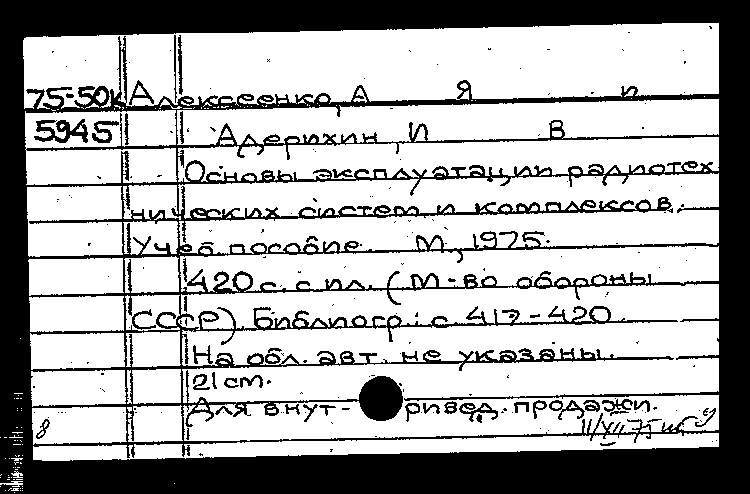 75-50к Алексеенко, А Я п
5945 Адерихин, И В
Основы эксплуатации радиотех
нических систем и комплексов.
Учеб. пособие. М., 1975.
420 с. с ил. (М-во обороны
СССР). Библиогр.: с 417-420.
На обл. авт. не указаны.
21 cm.
Для внут- ривед. продажи.
8 11/XII 75